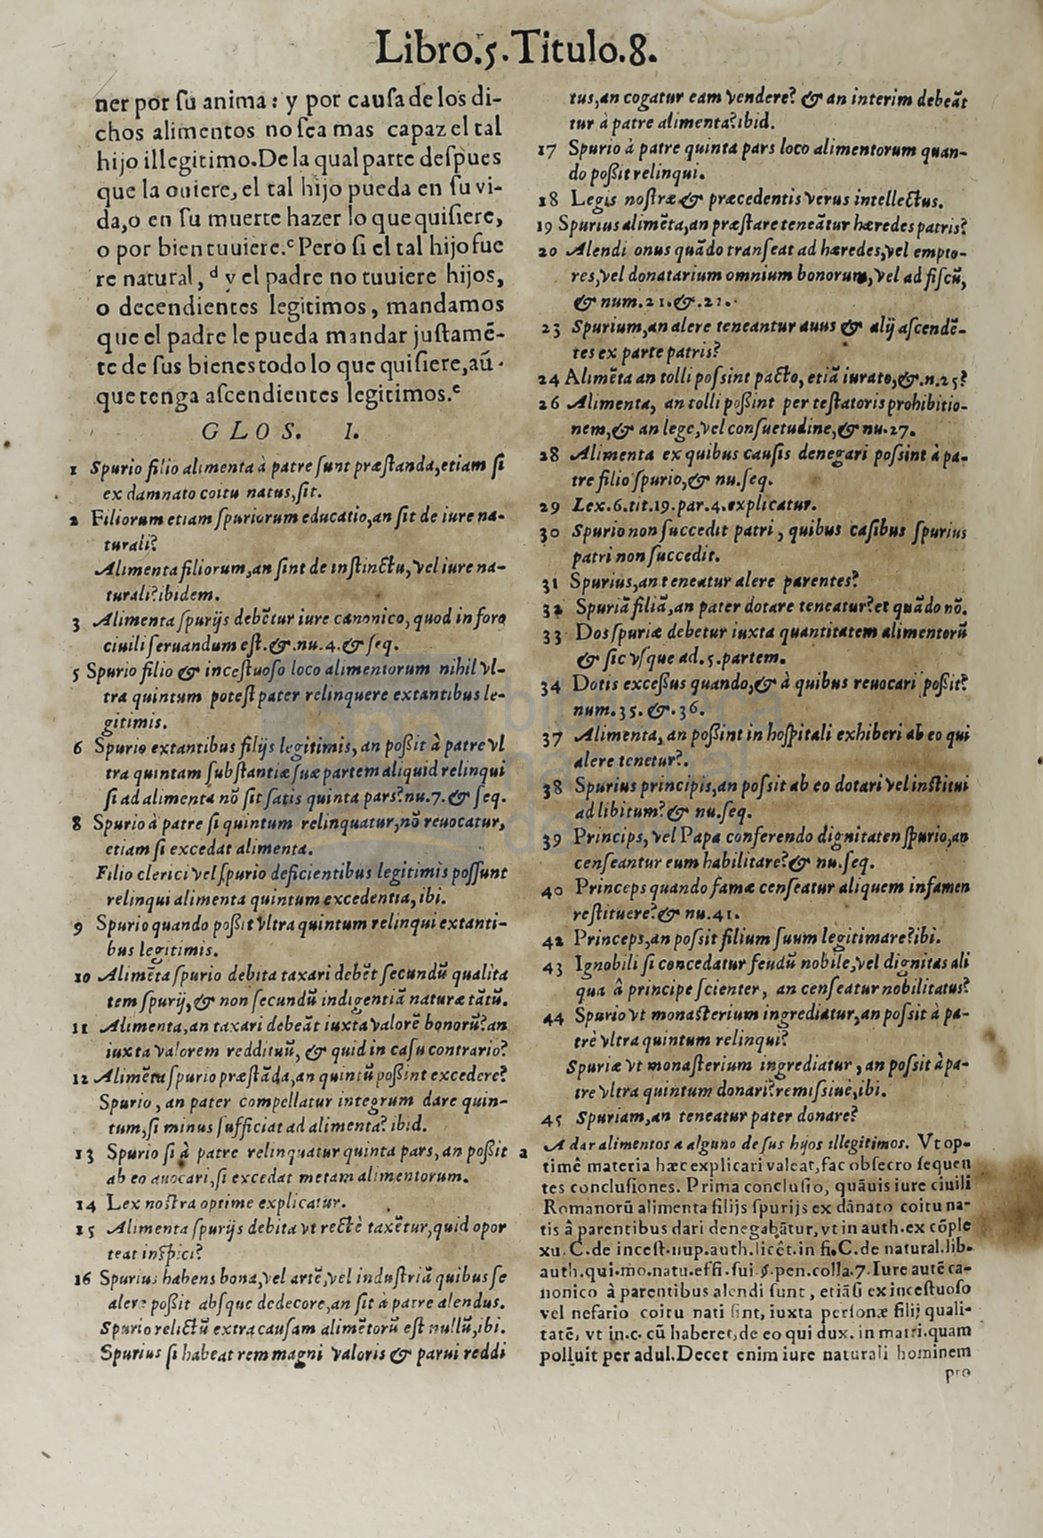 Libro.5.Titulo.8.
ner por su anima: y por causa de los di-
chos alimentos no sea mas capaz el tal
hijo illegitimo. De la qual parte despues
que la ouiere, el tal hijo pueda en su vi-
da, o en su muerte hazer lo que quisiere,
o por bien tuuiere.ᶜ Pero si el tal hijo fue
re natural, ᵈ y el padre no tuuiere hijos,
o decendientes legitimos, mandamos
que el padre le pueda mandar justamẽ-
te de sus bienes todo lo que quisiere, aũ
que tenga ascendientes legitimos.ᵉ
GLOS. I.
1 Spurio filio alimenta à patre sunt præstanda, etiam si
ex damnato coitu natus, sit.
2 Filiorum etiam spuriorum educatio, an sit de iure na-
turali?
Alimenta filiorum, an sint de instinctu, vel iure na-
turali? ibidem.
3 Alimenta spurijs debẽtur iure canonico, quod in foro
ciuili seruandum est. &. nu. 4. & seq.
5 Spurio filio & incestuoso loco alimentorum nihil vl-
tra quintum potest pater relinquere extantibus le-
gitimis.
6 Spurio extantibus filijs legitimis, an possit à patre vl
tra quintam substantiæ suæ partem aliquid relinqui
si ad alimenta nõ sit satis quinta pars? nu. 7. & seq.
8 Spurio à patre si quintum relinquatur, nõ reuocatur,
etiam si excedat alimenta.
Filio clerici vel spurio deficientibus legitimis possunt
relinqui alimenta quintum excedentia, ibi.
9 Spurio quando possit vltra quintum relinqui extanti-
bus legitimis.
10 Alimẽta spurio debita taxari debẽt secundũ qualita
tem spurij, & non secundũ indigentiã naturæ tãtũ.
11 Alimenta, an taxari debeãt iuxta valorẽ bonorũ? an
iuxta valorem reddituũ, & quid in casu contrario?
12 Alimẽta spurio præstãda, an quintũ possint excedere?
Spurio, an pater compellatur integrum dare quin-
tum, si minus sufficiat ad alimenta? ibid.
13 Spurio si à patre relinquatur quinta pars, an possit
ab eo auocari, si excedat metam alimentorum.
14 Lex nostra optime explicatur.
15 Alimenta spurijs debita vt rectè taxẽtur, quid opor
teat inspici?
16 Spurius habens bona, vel artẽ, vel industriã quibus se
alere possit absque dedecore, an sit à patre alendus.
Spurio relictũ extra causam alimẽtorũ est nullũ, ibi.
Spurius si habeat rem magni valoris & parui reddi
tus, an cogatur eam vendere? & an interim debeãt
tur à patre alimenta? ibid.
17 Spurio à patre quinta pars loco alimentorum quan-
do possit relinqui.
18 Legis nostræ & præcedentis verus intellectus.
19 Spurius alimẽta, an præstare teneãtur hæredes patris?
20 Alendi onus quãdo transeat ad hæredes, vel empto-
res, vel donatarium omnium bonorum, vel ad fiscũ,
& num. 21. &. 22.
23 Spurium, an alere teneantur auus & alij ascendẽ-
tes ex parte patris?
24 Alimẽta an tolli possint pacto, etiã iurato, &. n. 25?
26 Alimenta, an tolli possint per testatoris prohibitio-
nem, & an lege, vel consuetudine, & nu. 27.
28 Alimenta ex quibus causis denegari possint à pa-
tre filio spurio, & nu. seq.
29 Lex. 6. tit. 19. par. 4. explicatur.
30 Spurio non succedit patri, quibus casibus spurius
patri non succedit.
31 Spurius, an teneatur alere parentes?
32 Spuriã filiã, an pater dotare teneatur? et quãdo nõ.
33 Dos spuriæ debetur iuxta quantitatem alimentorũ
& sic vsque ad. 5. partem.
34 Dotis excessus quando, & à quibus reuocari possit?
num. 35. &. 36.
37 Alimenta, an possint in hospitali exhiberi ab eo qui
alere tenetur?.
38 Spurius principis, an possit ab eo dotari vel institui
ad libitum? & nu. seq.
39 Princips, vel Papa conferendo dignitaten spurio, an
censeantur eum habilitare? & nu. seq.
40 Princeps quando famæ censeatur aliquem infamen
restituere? & nu. 41.
42 Princeps, an possit filium suum legitimare? ibi.
43 Ignobili si concedatur feudũ nobile, vel dignitas ali
qua à principe scienter, an censeatur nobilitatus?
44 Spurio vt monasterium ingrediatur, an possit à pa-
tre vltra quintum relinqui?
Spuriæ vt monasterium ingrediatur, an possit à pa-
tre vltra quintum donari? remissiuè, ibi.
45 Spuriam, an teneatur pater donare?
a A dar alimentos a alguno de sus hijos illegitimos. Vt op-
timè materia hæc explicari valeat, fac obsecro sequen
tes conclusiones. Prima conclusio, quãuis iure ciuili
Romanorũ alimenta filijs spurijs ex dãnato coitu na-
tis à parentibus dari denegabãtur, vt in auth. ex cõple
xu. C. de incest. nup. auth. licèt. in fi. C. de natural. lib.
auth. qui. mo. natu. effi. sui. §. pen. colla. 7. Iure autẽ ca-
nonico à parentibus alendi sunt, etiãsi ex incestuoso
vel nefario coitu nati sint, iuxta personæ filij quali-
tatẽ, vt in. c. cũ haberet, de eo qui dux. in matri. quam
polluit per adul. Decet enim iure naturali hominem
pro